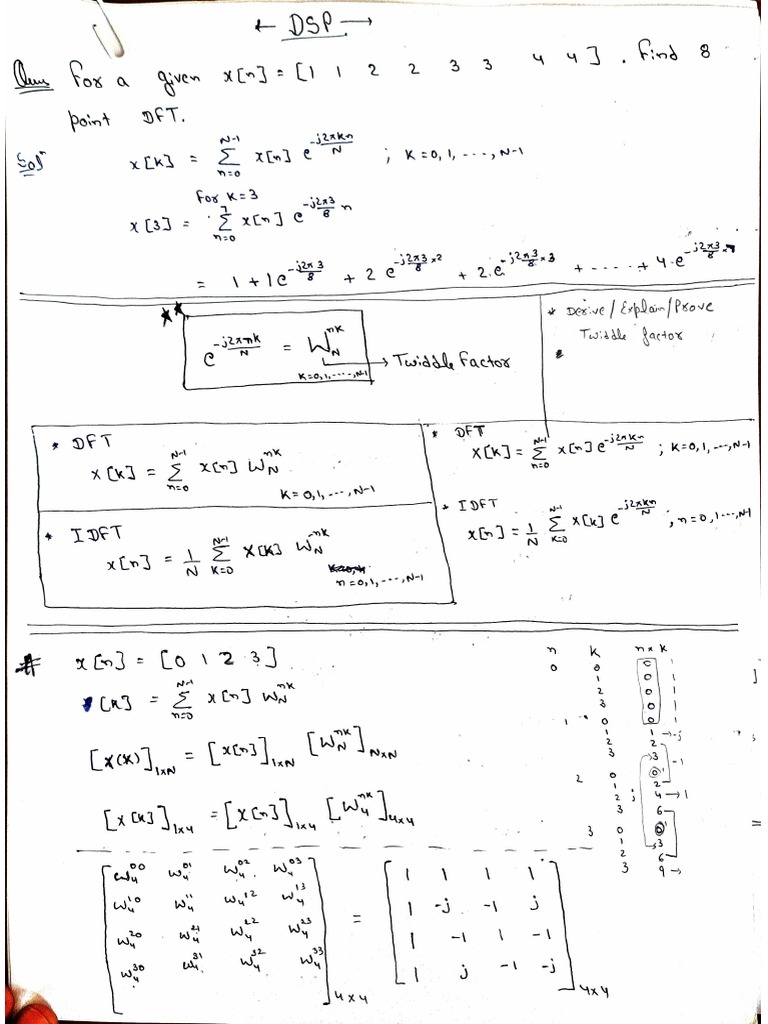 ← DSP →
Ques For a given x[n] = [1 1 2 2 3 3 4 4]. Find 8
point DFT.
Solⁿ x[k] = Σ_{n=0}^{N-1} x[n] e^{-j2πkn/N} ; k=0,1,...,N-1
For k=3
x[3] = Σ_{n=0}^{7} x[n] e^{-j2π3/8 n}
= 1 + 1e^{-j2π3/8} + 2e^{-j2π3/8×2} + 2.e^{-j2π3/8×3} + ..... + 4.e^{-j2π3/8×7}
** e^{-j2πnk/N} = W_N^{nk} → Twiddle Factor
k=0,1,...,N-1
* Derive/Explain/Prove
Twiddle factor
* DFT
x[k] = Σ_{n=0}^{N-1} x[n] W_N^{nk}
k=0,1,...,N-1
* IDFT
x[n] = 1/N Σ_{k=0}^{N-1} X[k] W_N^{nk}
n=0,1,...,N-1
* DFT
X[k] = Σ_{n=0}^{N-1} x[n] e^{-j2πkn/N} ; k=0,1,...,N-1
* IDFT
x[n] = 1/N Σ_{k=0}^{N-1} X[k] e^{-j2πkn/N} , n=0,1...,N-1
# x[n] = [0 1 2 3]
[k] = Σ_{n=0}^{N-1} x[n] W_N^{nk}
[X(k)]_{1×N} = [x[n]]_{1×N} [W_N^{nk}]_{N×N}
[x[k]]_{1×4} = [x[n]]_{1×4} [W_4^{nk}]_{4×4}
n k n×k
0 0 0 1
1 0 1
2 0 1
3 0 1
1 0 0 1
1 1 → -j
2 2
3 3 -1
2 0 0
1 2
2 4 → 1
3 6
3 0 0
1 3
2 6
3 9 →
W_4^{00} W_4^{01} W_4^{02} W_4^{03}
W_4^{10} W_4^{11} W_4^{12} W_4^{13}
W_4^{20} W_4^{21} W_4^{22} W_4^{23}
W_4^{30} W_4^{31} W_4^{32} W_4^{33}
4×4
=
1 1 1 1
1 -j -1 j
1 -1 1 -1
1 j -1 -j
4×4